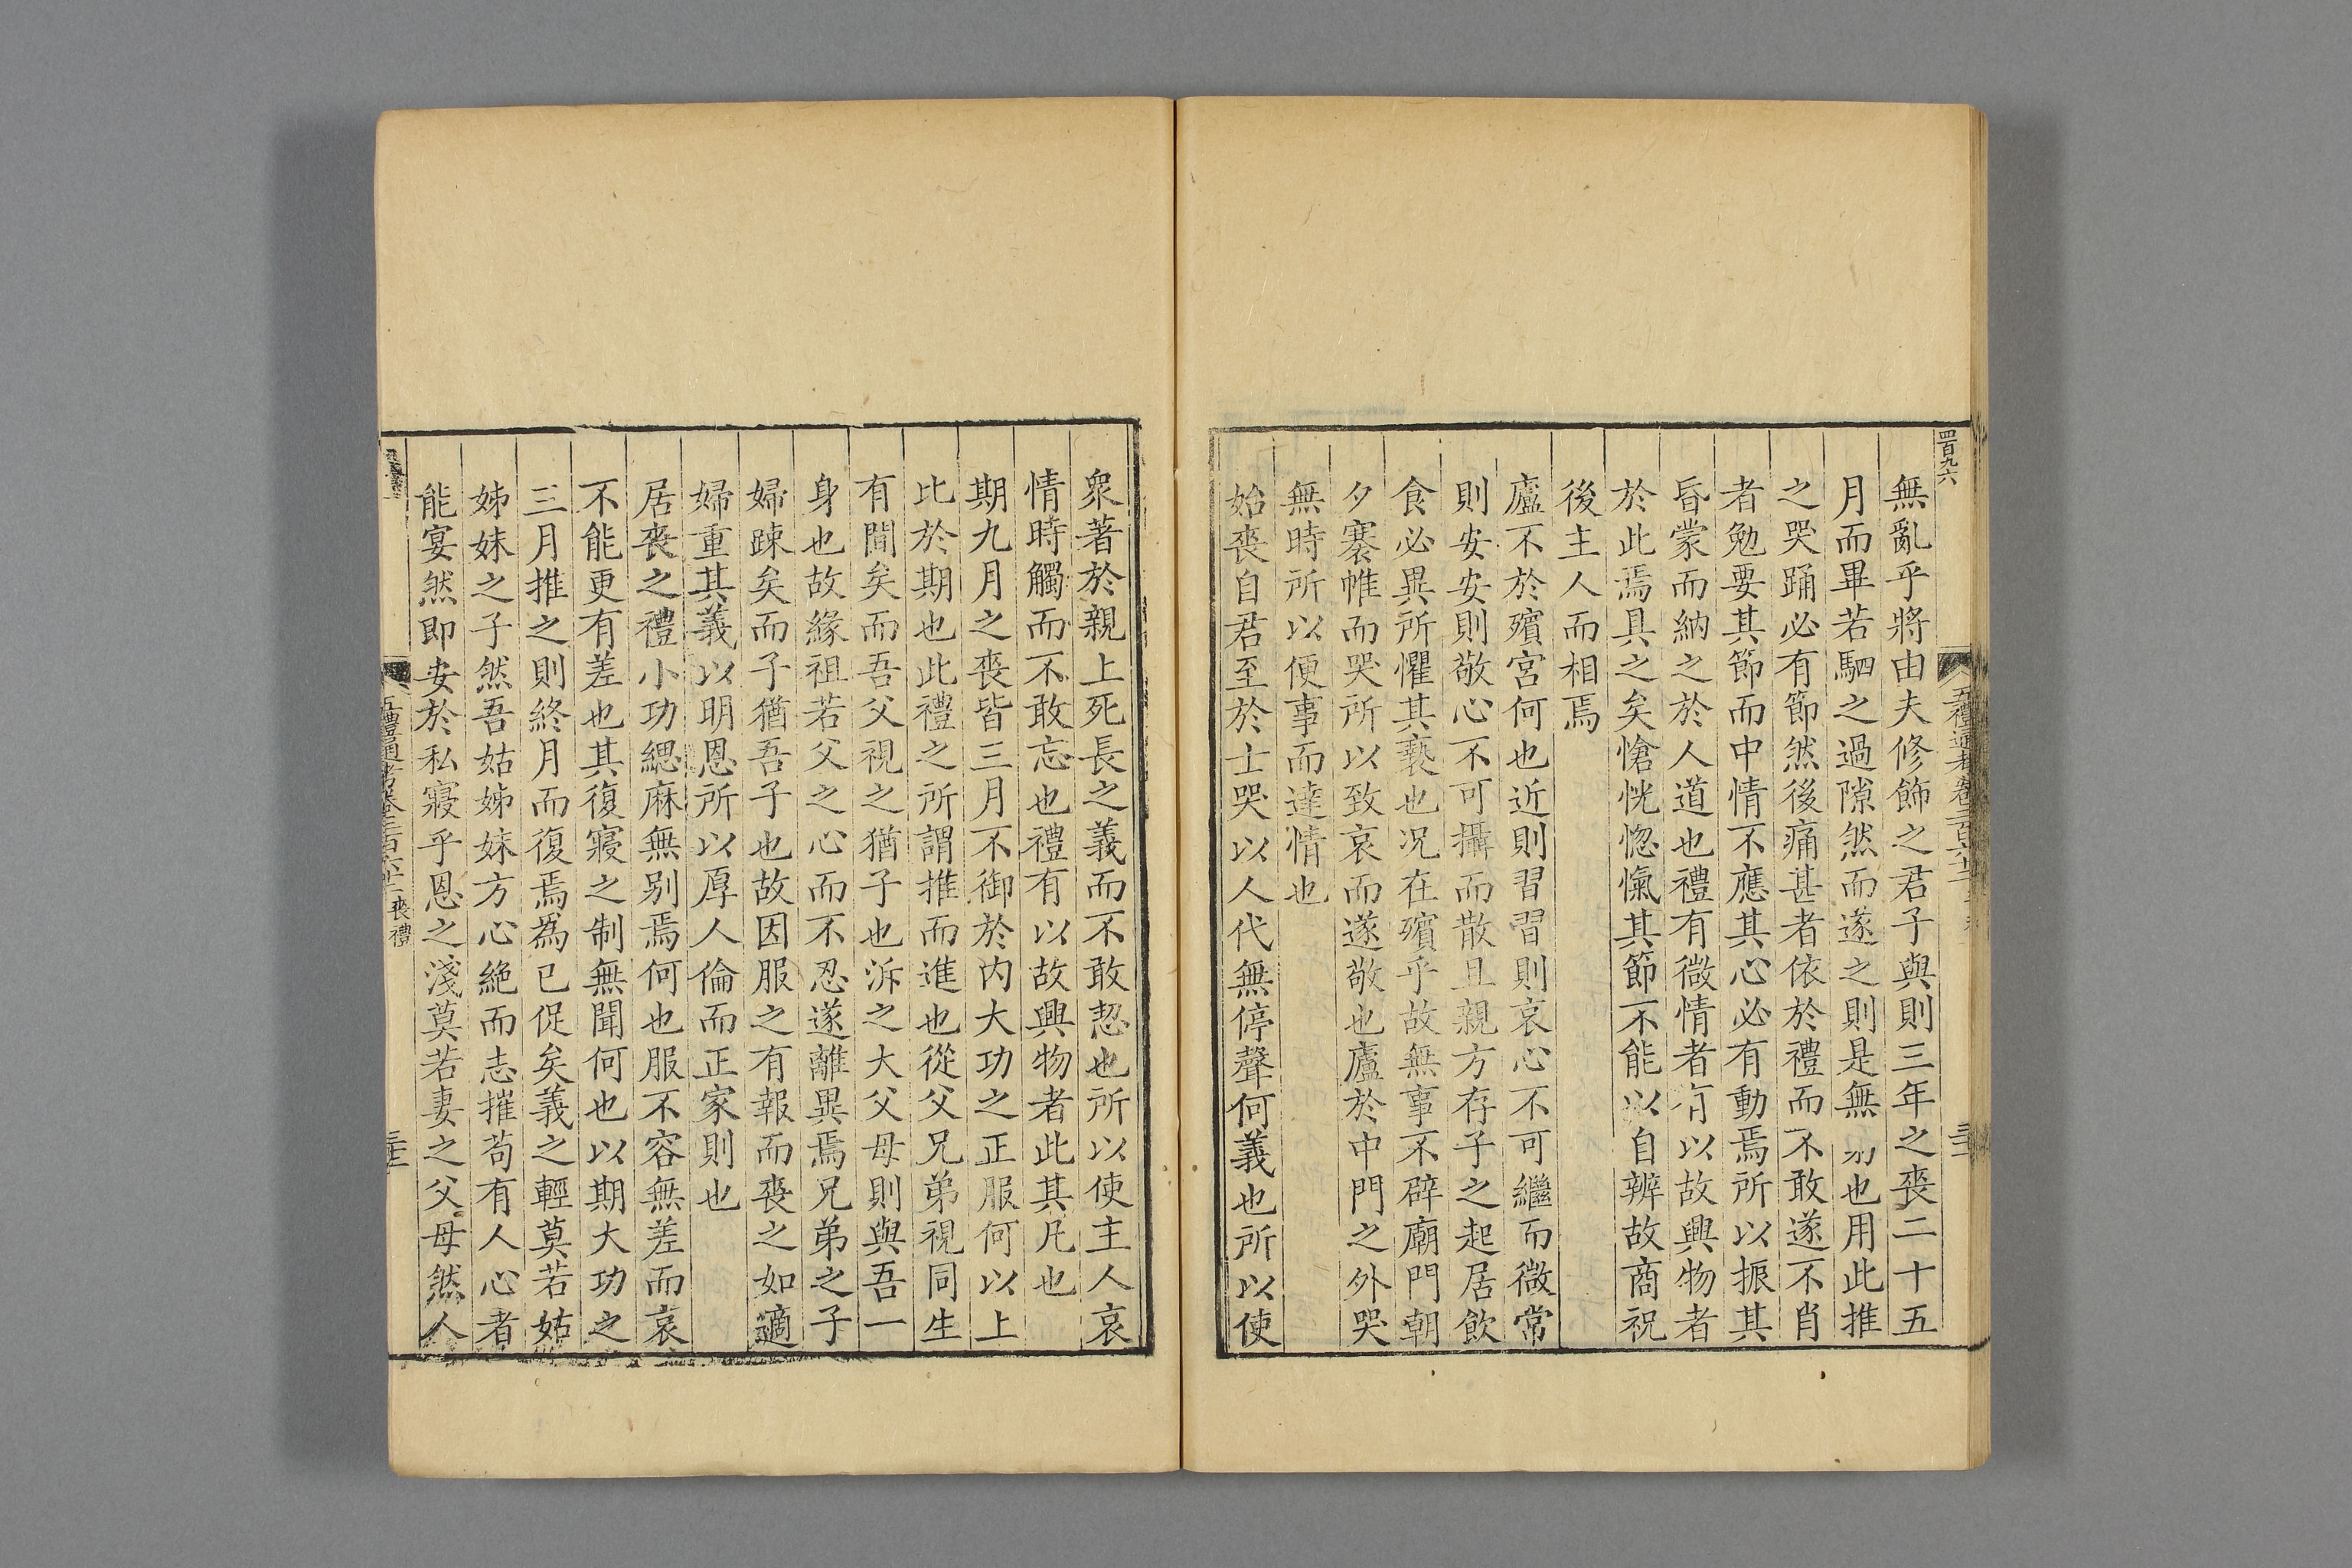 四百九六
無亂乎將由夫修飾之君子與則三年之喪二十五
月而畢若駟之過隙然而遂之則是無也用此推
之哭踊必有節然後痛甚者依於禮而不敢遂不肖
者勉要其節而中情不應其心必有動焉所以振其
昏蒙而納之於人道也禮有微情者有以故興物者
於此焉具之矣愴恍惚愾其節不能以自辨故商祝
後主人而相焉
廬不於殯宮何也近則習習則哀心不可繼而微常
則安安則敬心不可攝而散且親方存子之起居飲
食必異所懼其褻也况在殯乎故無事不辟廟門朝
夕褰帷而哭所以致哀而遂敬也廬於中門之外哭
無時所以便事而達情也
始喪自君至於士哭以人代無停聲何義也所以使
衆著於親上死長之義而不敢恝也所以使主人哀
情時觸而不敢忘也禮有以故興物者此其凡也
期九月之喪皆三月不御於内大功之正服何以上
比於期也此禮之所謂推而進也從父兄弟視同生
有間矣而吾父視之猶子也泝之大父母則與吾一
身也故緣祖若父之心而不忍遂離異焉兄弟之子
婦踈矣而子猶吾子也故因服之有報而喪之如適
婦重其義以明恩所以厚人倫而正家則也
居喪之禮小功緦麻無别焉何也服不容無差而哀
不能更有差也其復寢之制無聞何也以期大功之
三月推之則終月而復焉爲已促矣義之輕莫若姑
姊妹之子然吾姑姊妹方心絶而志摧苟有人心者
能宴然即安於私寢乎恩之淺莫若妻之父母然人
五禮通考卷二百六十二 喪禮
三十三